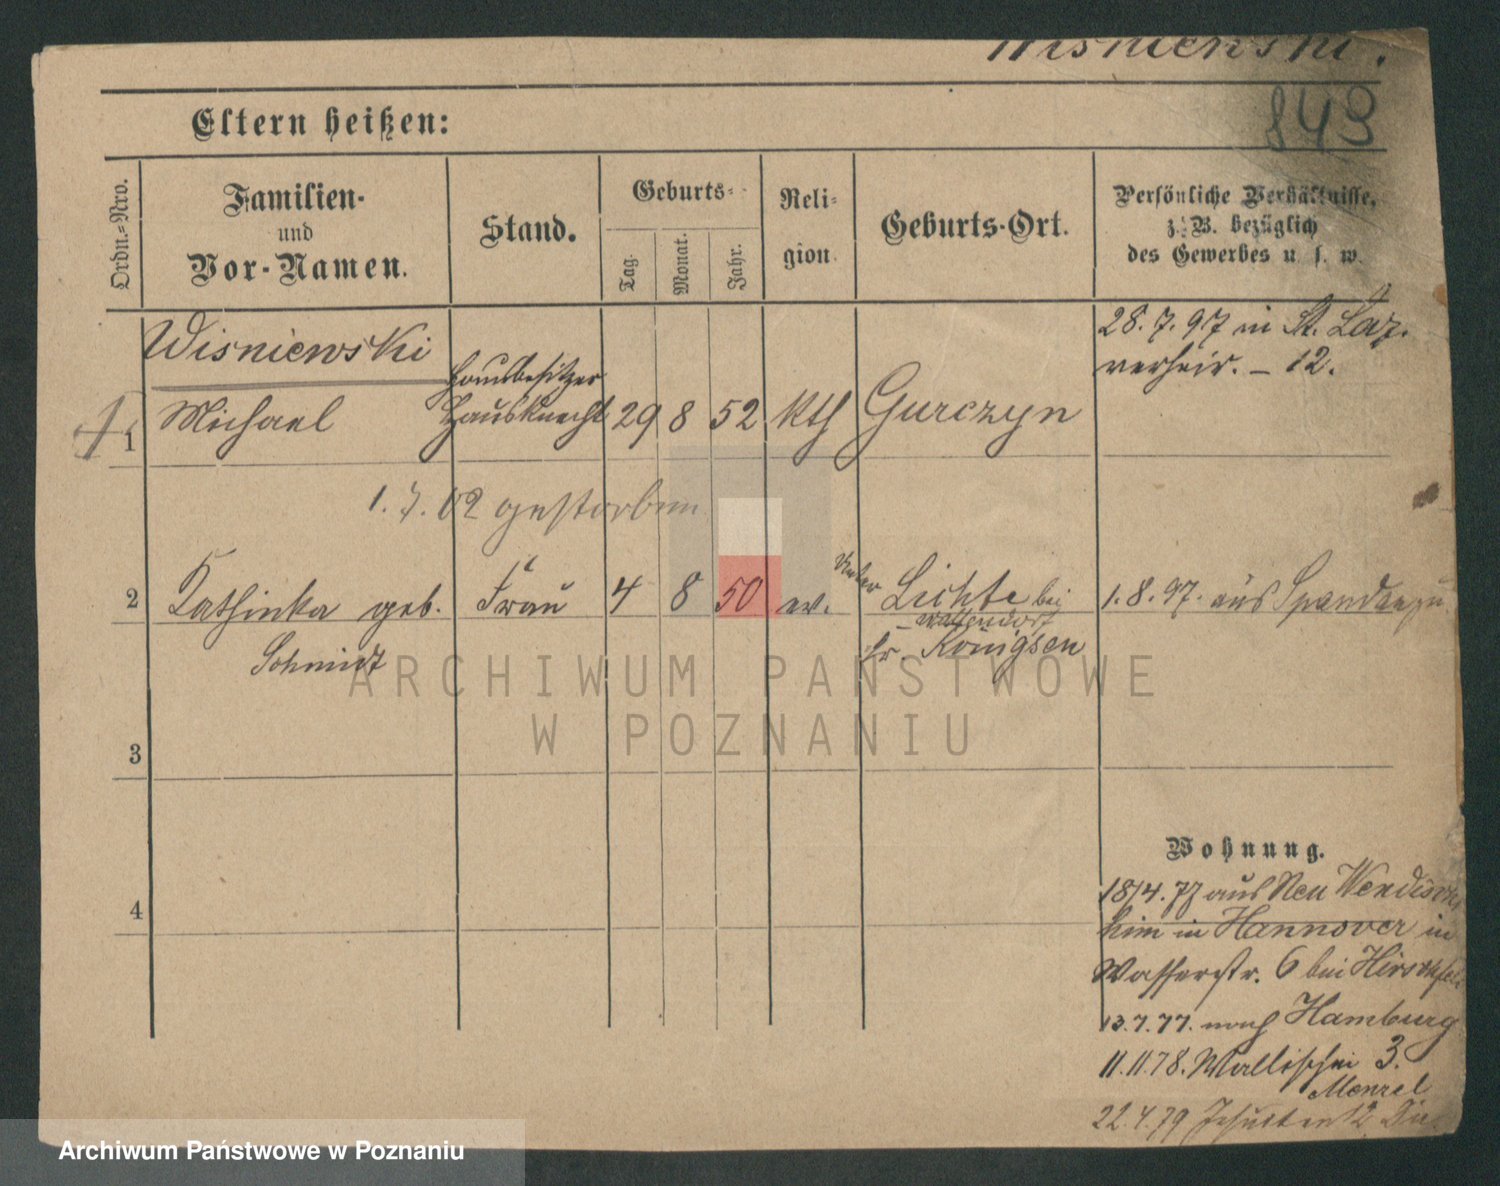 Wisniewski.
843
Eltern heißen:
Ordn.-Nro.
Familien-
und
Vor-Namen.
Stand.
Geburts-
Tag.
Monat.
Jahr.
Reli-
gion
Geburts-Ort.
Persönliche Verhältnisse,
z. B. bezüglich
des Gewerbes u. s. w.
Wisniewski
28. 7. 97 in St. Laz.
verheir. – 12.
Hausbesitzer
1 Michael Hausknecht 29 8 52 kth Gurczyn
1. 7. 02 gestorben
2 Kathinka geb. Frau 4 8 50 ev. Unter Lichte bei 1. 8. 97. aus Spandau zu
Wallendorf
Schmidt Kr. Königsen
3
4
Wohnung.
18/4. 77 aus Neu Wendisch
heim in Hannover in
Wasserstr. 6 bei Hirschfel
13. 7. 77. nach Hamburg
11. 11. 78. Wallischei 3.
Menzel
22. 4. 79 Jesuiten 12
ARCHIWUM PAŃSTWOWE
W POZNANIU
Archiwum Państwowe w Poznaniu